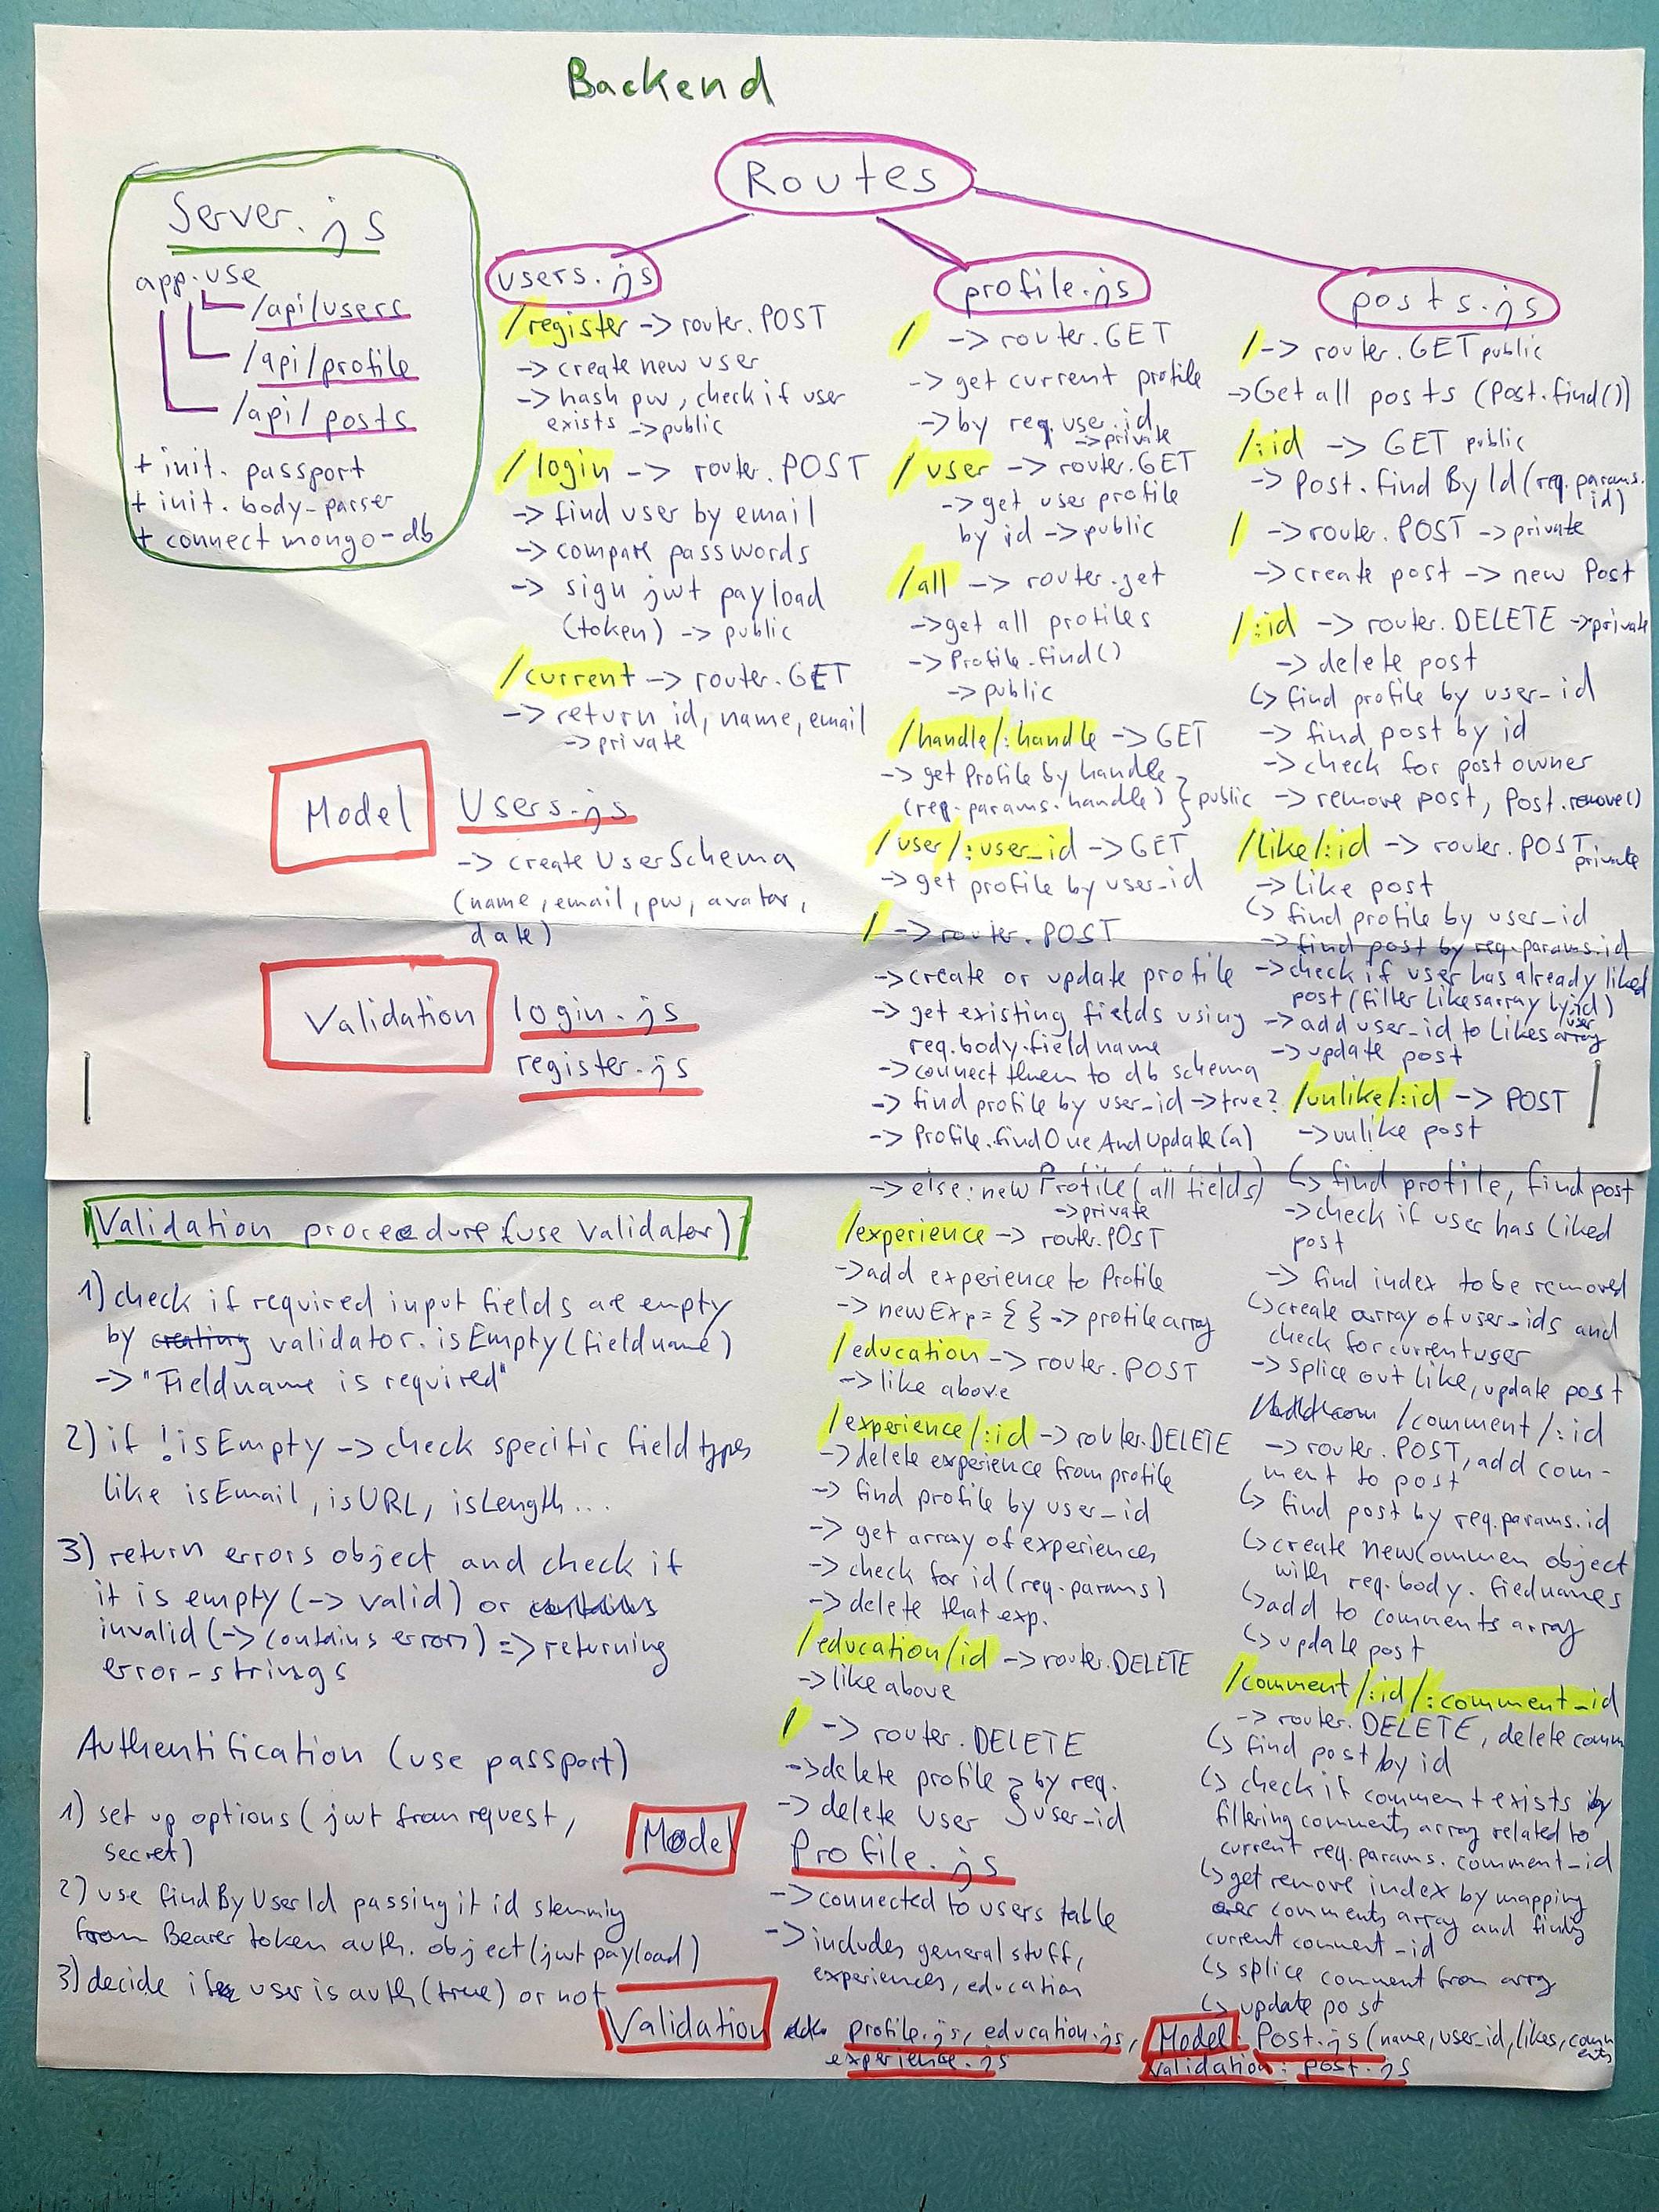 Backend
Server.js
app.use
/api/users
/api/profile
/api/posts
+ init. passport
+ init. body-parser
+ connect mongo-db
Routes
users.js
/register -> router.POST
-> create new user
-> hash pw, check if user
exists -> public
/login -> router.POST
-> find user by email
-> compare passwords
-> sign jwt payload
(token) -> public
/current -> router.GET
-> return id, name, email
-> private
Model
Users.js
-> create UserSchema
(name, email, pw, avatar,
date)
Validation
login.js
register.js
profile.js
/ -> router.GET
-> get current profile
-> by req.user.id
-> private
/user -> router.GET
-> get user profile
by id -> public
/all -> router.get
-> get all profiles
-> Profile.find()
-> public
/handle/:handle -> GET
-> get Profile by handle
(req.params.handle) } public
/user/:user_id -> GET
-> get profile by user_id
/ -> router.POST
-> create or update profile
-> get existing fields using
req.body.fieldname
-> connect them to db schema
-> find profile by user_id -> true?
-> Profile.findOneAndUpdate(a)
-> else: new Profile(all fields)
-> private
/experience -> router.POST
-> add experience to Profile
-> newExp = { } -> profile array
/education -> router.POST
-> like above
/experience/:id -> router.DELETE
-> delete experience from profile
-> find profile by user_id
-> get array of experiences
-> check for id (req.params)
-> delete that exp.
/education/id -> router.DELETE
-> like above
/ -> router.DELETE
-> delete profile } by req.
-> delete User } user_id
Model
Profile.js
-> connected to users table
-> includes general stuff,
experiences, education
Validation
profile.js, education.js,
experience.js
posts.js
/ -> router.GET public
-> Get all posts (Post.find())
/:id -> GET public
-> Post.findById(req.params.
id)
/ -> router.POST -> private
-> create post -> new Post
/:id -> router.DELETE -> private
-> delete post
↳ find profile by user_id
-> find post by id
-> check for post owner
-> remove post, Post.remove()
/like/:id -> router.POST
private
-> like post
↳ find profile by user_id
-> find post by req.params.id
-> check if user has already liked
post (filter Likesarray by id)
user
-> add user_id to Likes array
-> update post
/unlike/:id -> POST
-> unlike post
↳ find profile, find post
-> check if user has liked
post
-> find index to be removed
↳ create array of user_ids and
check for current user
-> splice out like, update post
/comment/:id
-> router.POST, add com-
ment to post
↳ find post by req.params.id
↳ create newCommen object
with req.body.fiednames
↳ add to comments array
↳ update post
/comment/:id/:comment_id
-> router.DELETE, delete comm
↳ find post by id
↳ check if comment exists by
filtering comments array related to
current req.params.comment_id
↳ get remove index by mapping
over comments array and findng
current comment_id
↳ splice comment from arry
↳ update post
Model: Post.js (name, user_id, likes, comm
ents
Validation: post.js
Validation procedure (use Validator)
1) check if required input fields are empty
by creating validator.isEmpty(fieldname)
-> "Fieldname is required"
2) if !isEmpty -> check specific field types
like isEmail, isURL, isLength...
3) return errors object and check if
it is empty (-> valid) or contains
invalid (-> contains errors) => returning
error-strings
Authentification (use passport)
1) set up options (jwt from request,
secret)
2) use findByUserId passing it id stemming
from Bearer token auth. object (jwt payload)
3) decide if user is auth (true) or not